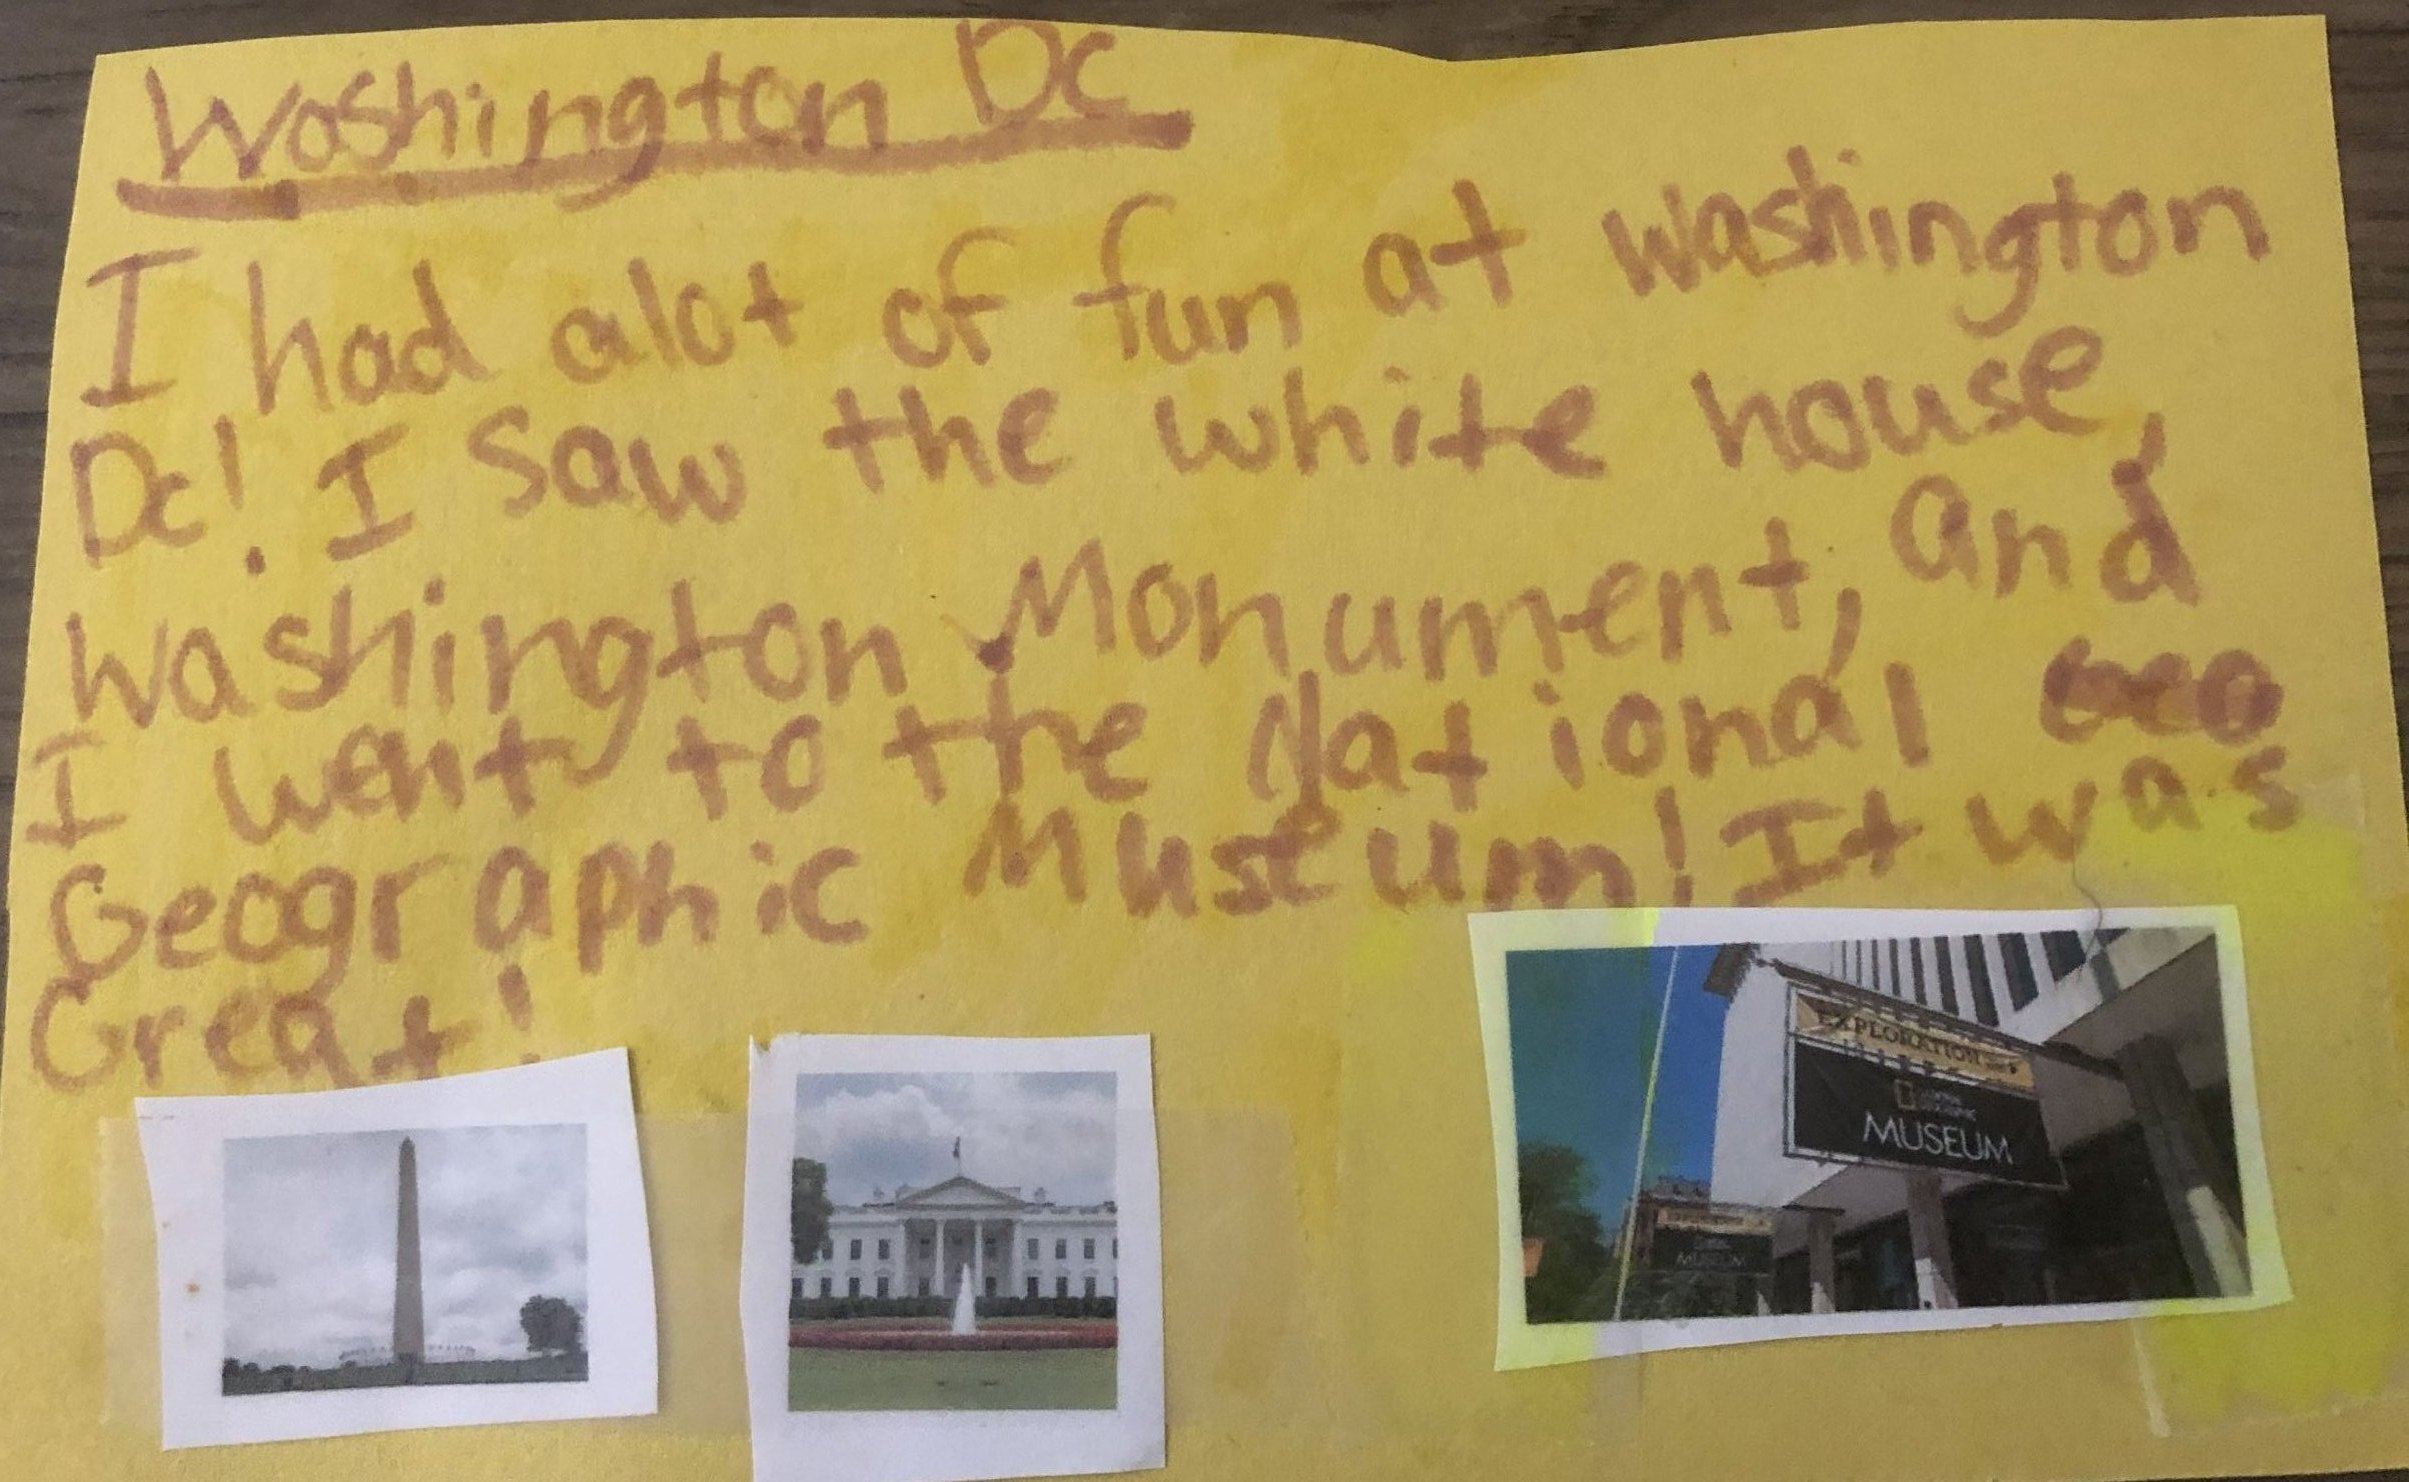 Washington Dc
I had alot of fun at Washington
Dc! I saw the white house,
Washington Monument, and
I went to the National
Geographic Museum! It was
Great!
EXPLORATION
NATIONAL
GEOGRAPHIC
MUSEUM
MUSEUM